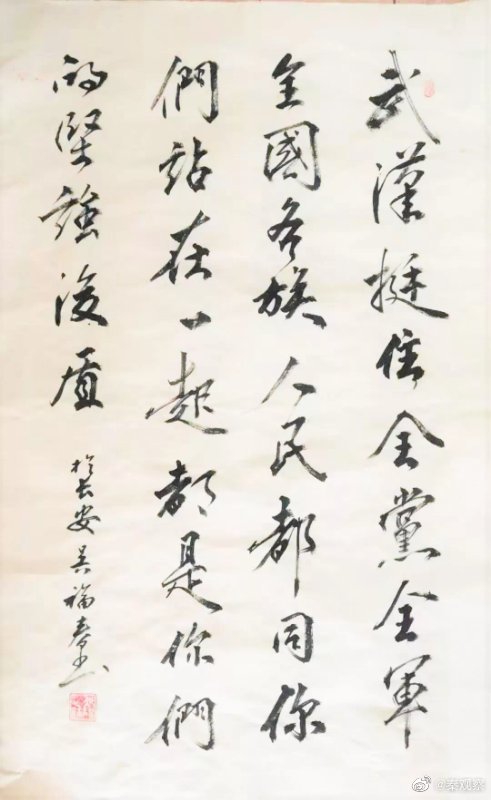 武漢挺住全黨全軍
全國各族人民都同你
們站在一起都是你們
的堅強後盾
於長安吴福春書
@秦观察